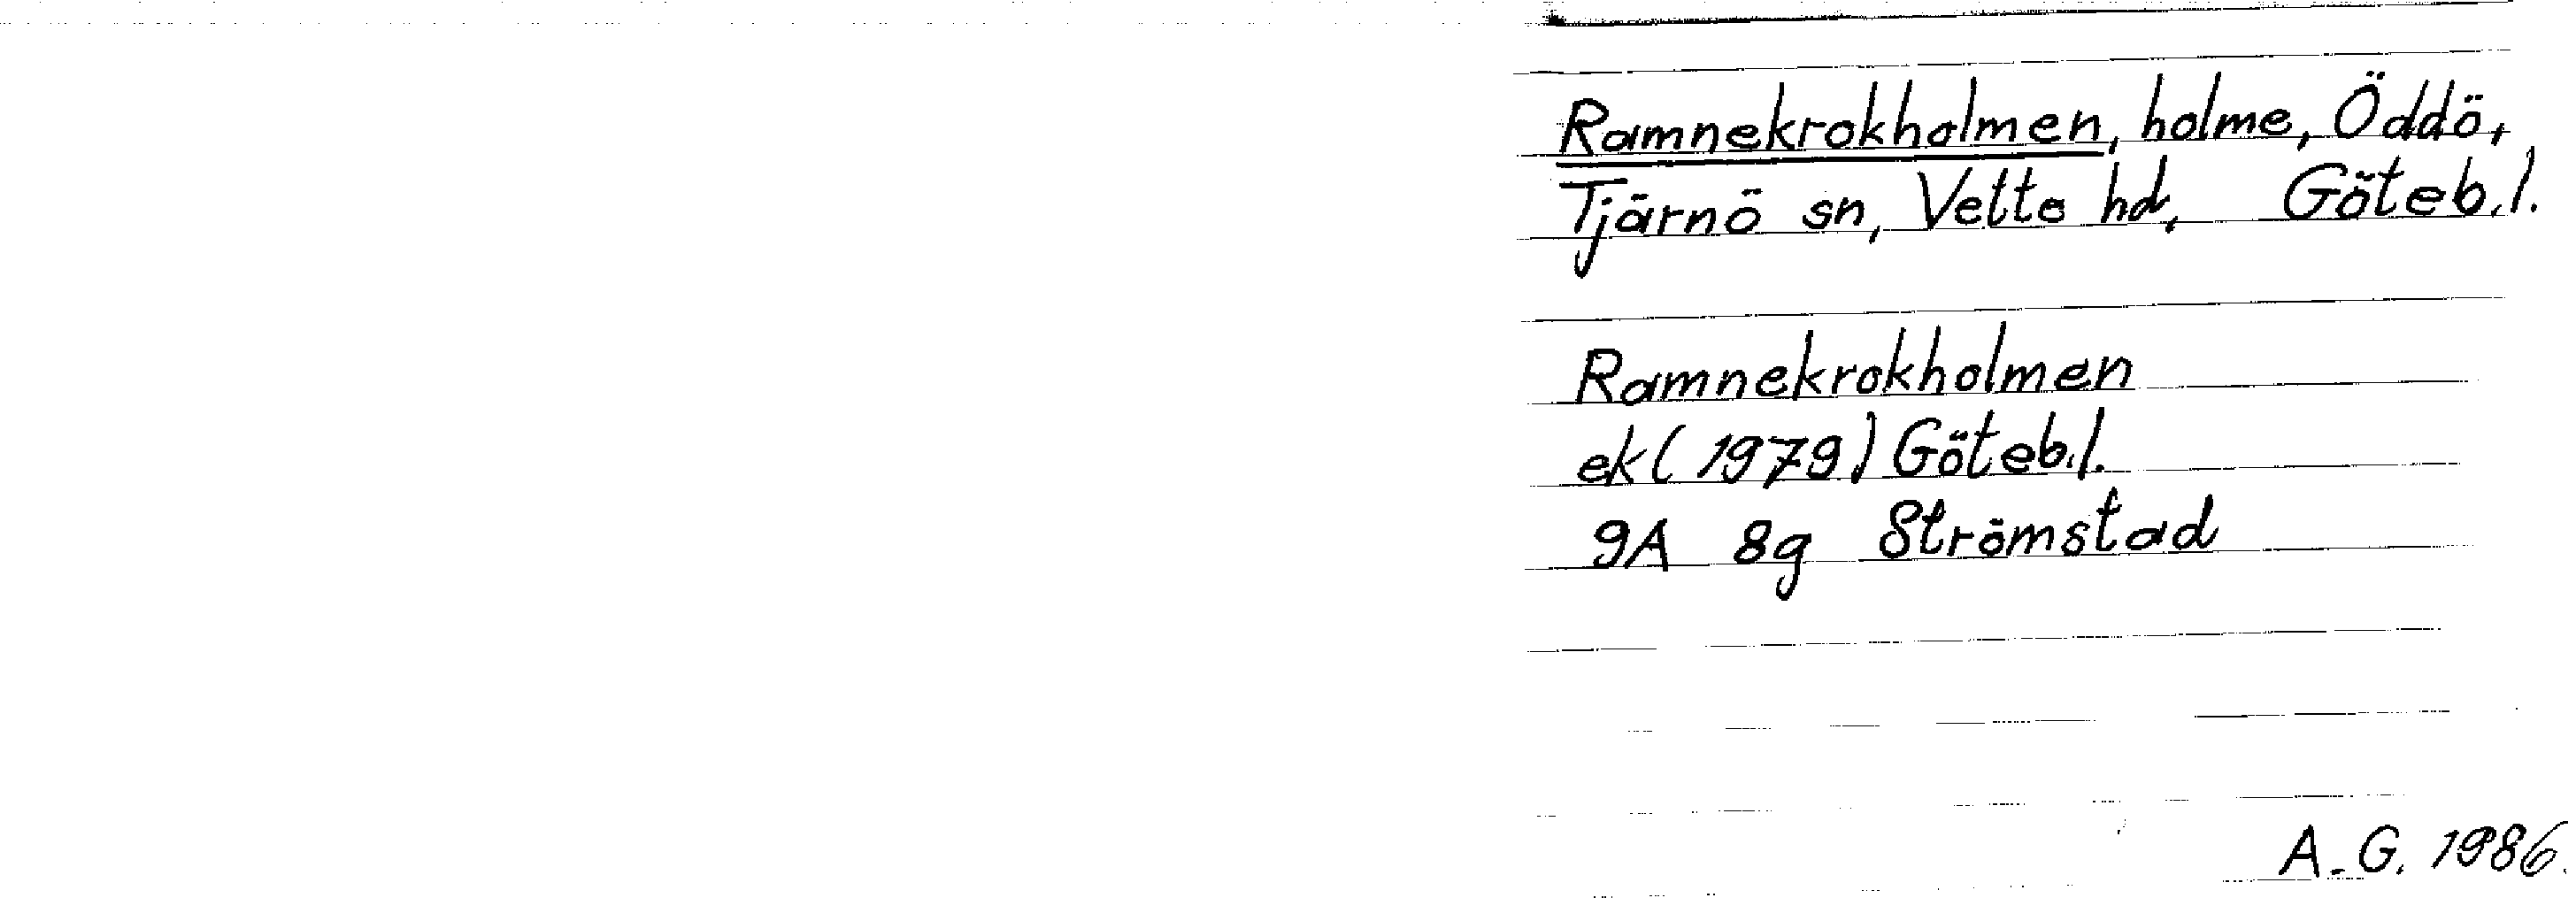 Ramnekrokholmen, holme, Öddö,
Tjärnö sn, Vette hd, Göteb.l.
Ramnekrokholmen
ek (1979) Göteb.l.
9A 8g Strömstad
A.G. 1986.